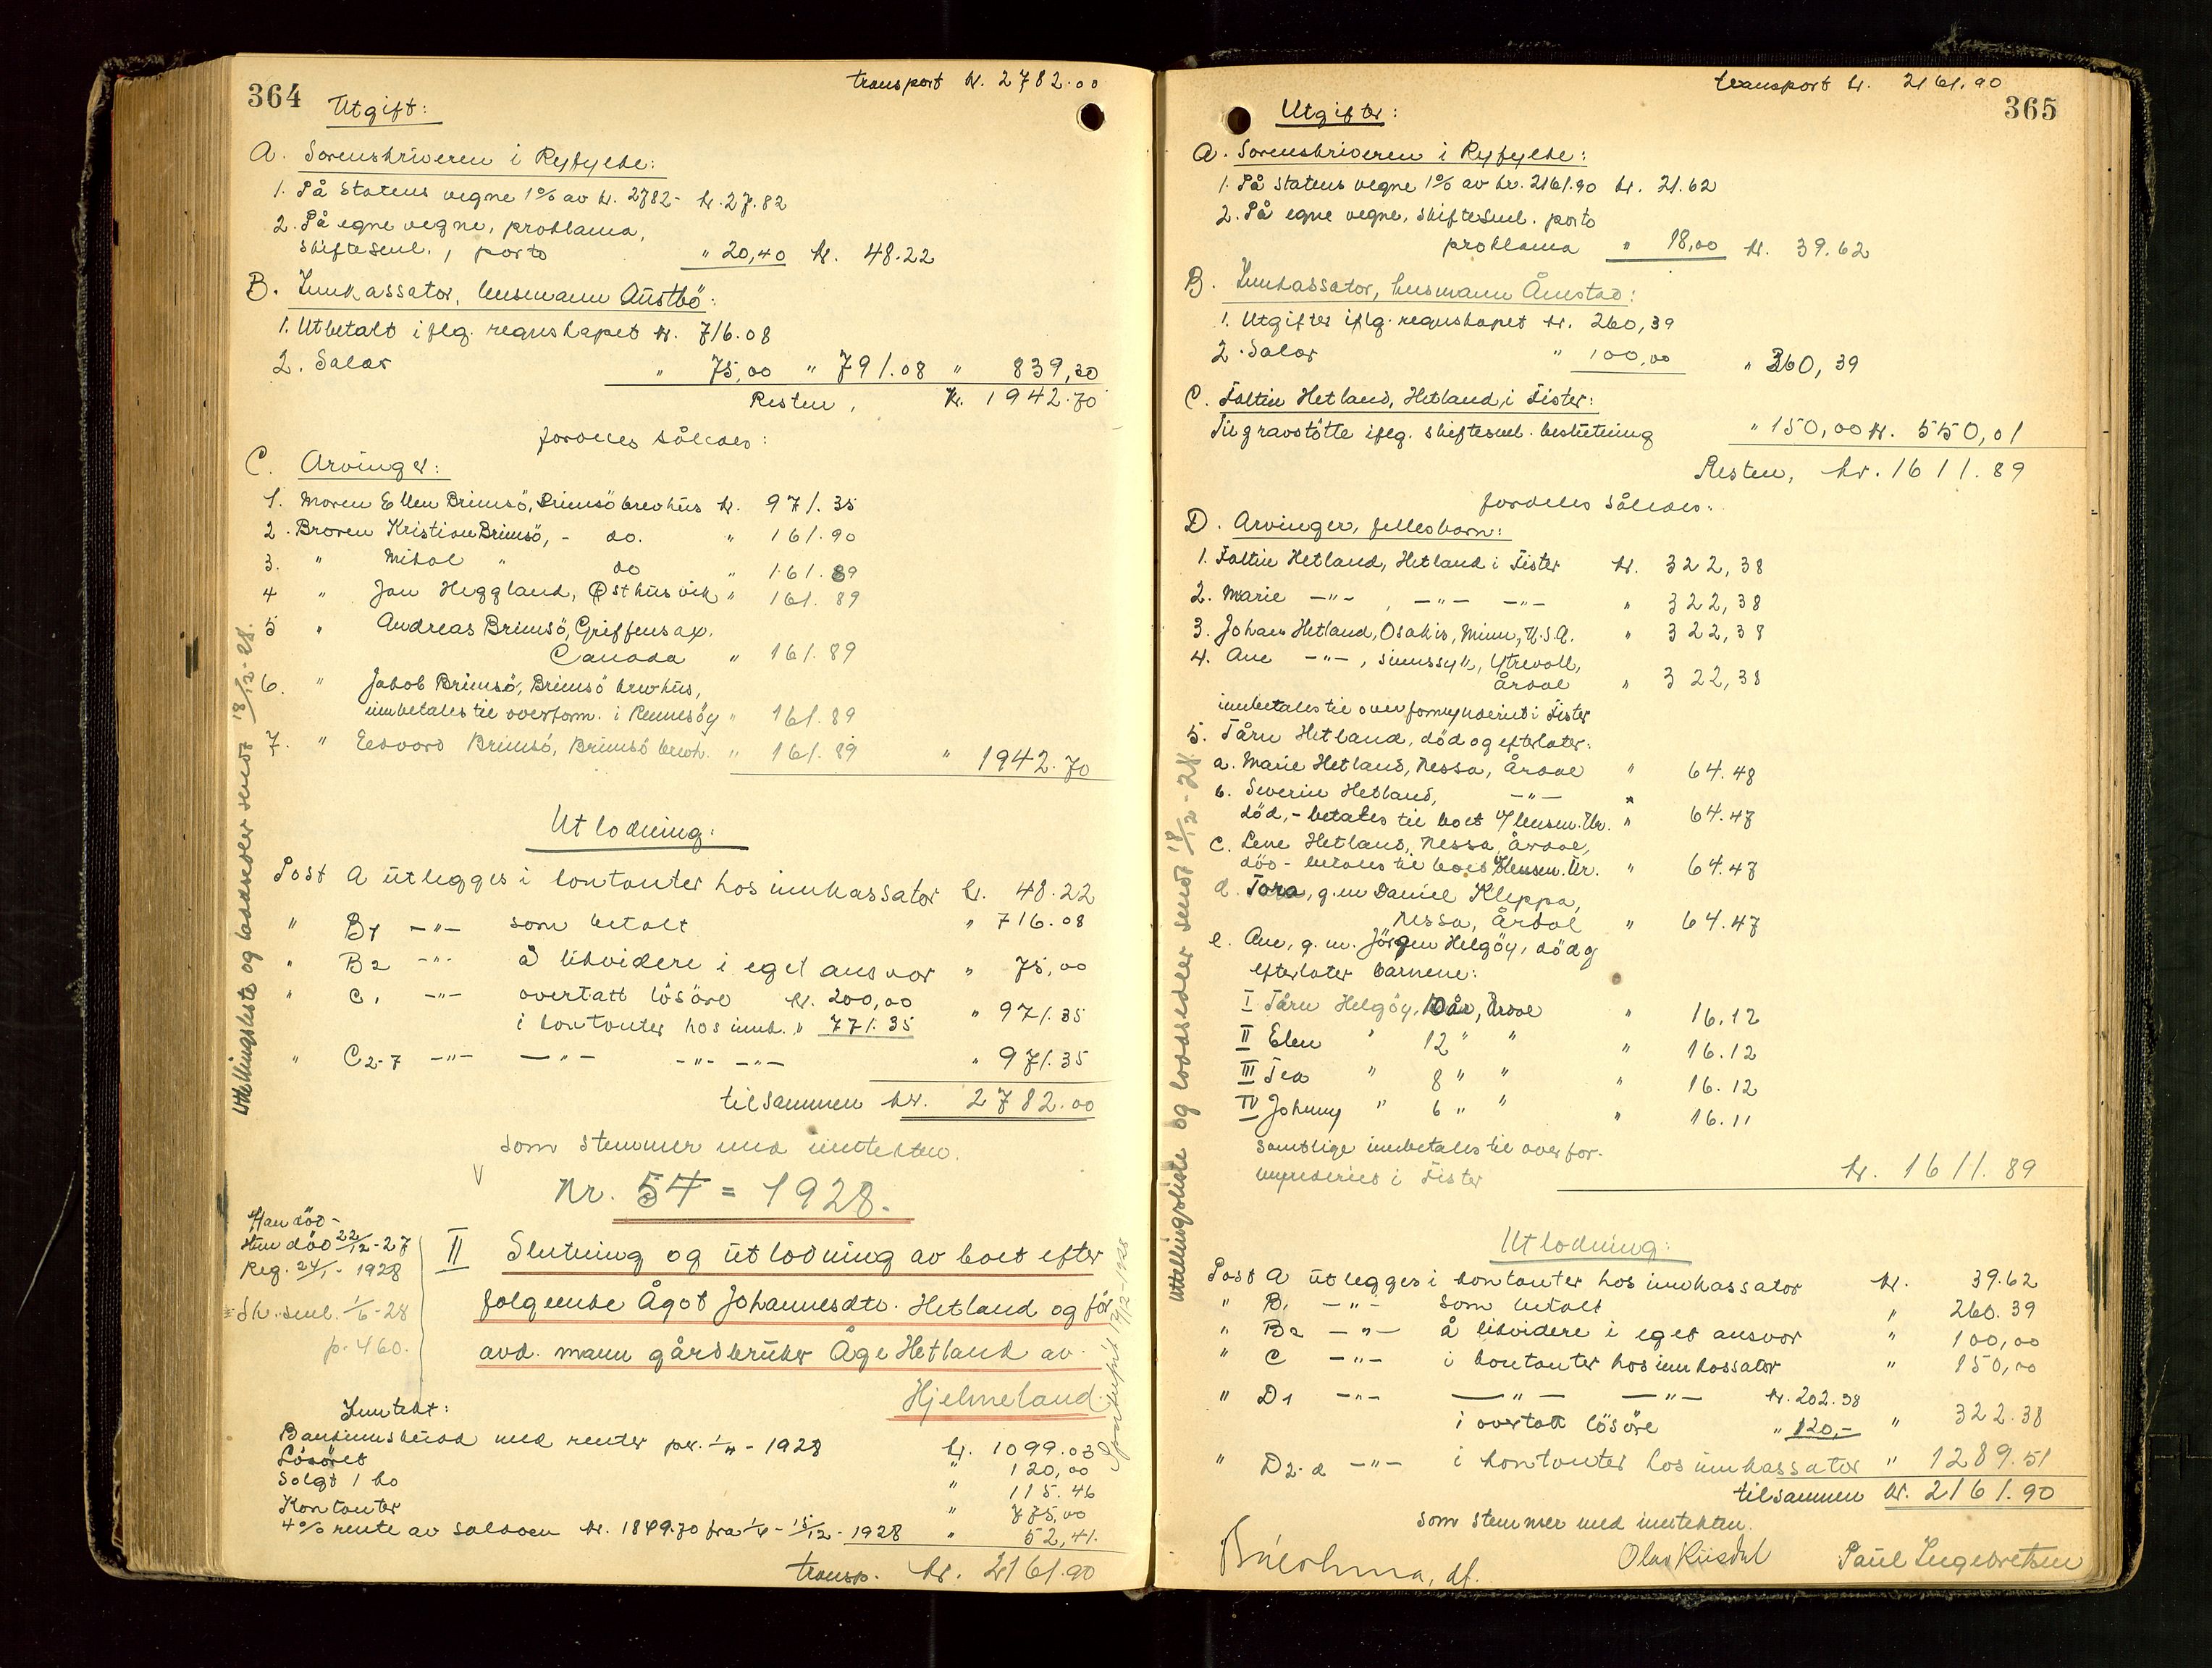 364
transport kr. 2782.00
Utgift:
A. Sorenskriveren i Ryfylke:
1. På statens vegne 1% av kr. 2782- kr. 27.82
2. På egne vegne, proklama,
skiftesml., porto " 20,40 kr. 48.22
B. Innkassator, lensmann Austbö:
1. Utbetalt iflg. regnskapet kr. 716.08
2. Salær " 75,00 " 791.08 " 839,30
Resten, kr. 1942.70
fordeles således:
C. Arvinger:
1. Moren Ellen Brimsö, Brimsö brevhus kr. 971.35
2. Broren Kristian Brimsö, - do. " 161.90
3. " Mikal " do " 161.89
4 " Jan Heggland, Østhusvik " 161.89
5 " Andreas Brimsö, Griffensax.
Canada " 161.89
6. " Jakob Brimsö, Brimsö brevhus,
innbetales til overform. i Rennesöy " 161.89
7. " Edvard Brimsö, Brimsö brevh. " 161.89 " 1942.70
Utlodning:
Post A utlegges i kontanter hos innkassator kr. 48.22
" B1 -"- som betalt " 716.08
" B2 -"- å likvidere i eget ansvar " 75,00
" C1 -"- overtatt lösöre kr. 200,00
i kontanter hos innk. " 771.35 " 971.35
" C2-7 -"- -"- -"- -"- " 971.35
tilsammen kr. 2782.00
som stemmer med inntekten.
Utdelingsliste og loddsedler sendt 18/12-28.
Nr. 54 = 1928.
Han död -
Hun död 22/12-27
Reg. 24/1 - 1928
Sk. sml. 1/6-28
p. 460.
II Slutning og utlodning av boet efter
folgeenke Ågot Johannesdtr. Hetland og för
avd. mann gårdbruker Åge Hetland av
Hjelmeland.
Inntekt:
Bankinnskudd med renter pr. 1/4 - 1928 kr. 1099.03
Lösöret " 120,00
Solgt 1 ko " 115.46
Kontanter " 775,00
4% rente av saldoen kr. 1849.70 fra 1/4 - 15/12 - 1928 " 52,41.
transp. kr. 2161.90
365
transport kr. 2161.90
Utgifter:
A. Sorenskriveren i Ryfylke:
1. På statens vegne 1% av kr. 2161.90 kr. 21.62
2. På egne vegne, skiftesml. porto
proklama " 18,00 kr. 39.62
B. Innkassator, lensmann Åmstad:
1. Utgifter iflg. regnskapet kr. 260,39
2. Salær " 100,00 " 360,39
C. Faltin Hetland, Hetland i Fister:
Til gravstötte iflg. skiftesml. beslutning " 150,00 kr. 550,01
Resten, kr. 1611.89
fordeles således:
D. Arvinger, fellesbarn:
1. Faltin Hetland, Hetland i Fister kr. 322,38
2. Marie -"- , -"- -"- " 322,38
3. Johan Hetland, Osakis, Minn, U.S.A. " 322,38
4. Ane -"- , sinnssyk, Ytrevoll,
Årdal " 322,38
innbetales til overformynderiet i Fister
5. Tårn Hetland, död og efterlater:
a. Marie Hetland, Nessa, Årdal " 64.48
b. Severin Hetland, -"-
död, - betales til boet v/ lensm. Ur. " 64.47
c. Lene Hetland, Nessa, Årdal,
död - betales til boet v/ lensm. Ur. " 64.47
d. Tora, g.m Daniel Kleppa,
Nessa, Årdal " 64.47
e. Ane, g.m. Jörgen Helgöy, död og
efterlater barnene:
I Tårn Helgöy, 10 år, Årdal " 16.12
II Elen " 12 " " " 16.12
III Tea " 8 " " " 16.12
IV Johnny " 6 " " " 16.11
samtlige innbetales til overfor-
mynderiet i Fister kr. 1611.89
Utdelingsliste og loddsedler sendt 18/12-28.
Utlodning:
Post A utlegges i kontanter hos innkassator kr. 39.62
" B1 -"- som betalt " 260.39
" B2 -"- å likvidere i eget ansvar " 100,00
" C -"- i kontanter hos innkassator " 150,00
" D1 -"- -"- -"- kr. 202.38
i overtatt lösöre " 120,- " 322.38
" D2-d -"- i kontanter hos innkassator " 1289.51
tilsammen kr. 2161.90
som stemmer med inntekten.
Olav Riisdal Paul Ingebretsen